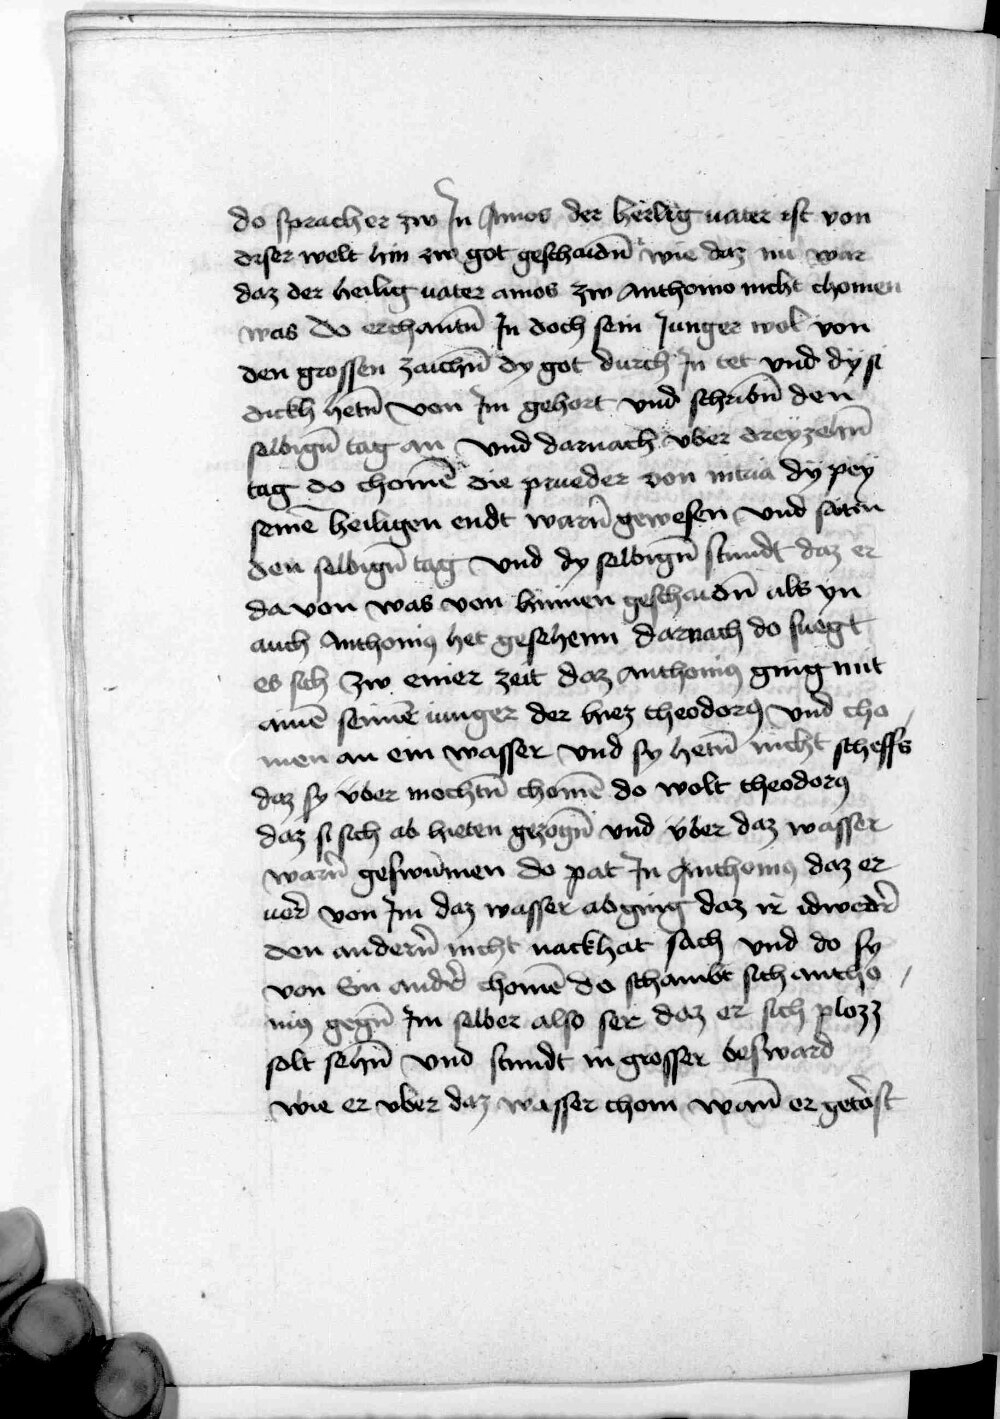 do sprach er zw Jn Amos der heilig uater ist von
diser welt hin zw got geschaidn̄ wie daz nu war
daz der heilig uater amos zw Anthonio nicht chomen
was do erchantn̄ Jn doch sein Junger wol von
den grossen zaichn̄ dy got durch Jn tet vnd dy si
dickh hetn̄ von Jm gehort vnd schribn̄ den
selbign̄ tag an vnd darnach vber dreyzehn̄
tag do chomē die prueder von nitria dy pey
seinē heiligen endt warn̄ gewesen vnd satn̄
den selbign̄ tag vnd dy selbign̄ stundt daz er
da von was von hinnen geschaidn̄ als yn
auch Anthoniꝰ het gesehenn darnach do fuegt
es sich zw einer zeit daz Anthoniꝰ ging mit
ainē seinē iunger der hiez theodorꝰ vnd cho
men an ein wasser vnd sy hetn̄ nicht scheffs
daz sy vber mochtn̄ chomē do wolt theodorꝰ
daz si sich ab hieten gezogn̄ vnd vber daz wasser
warn̄ geswūmen do pat Jn Anthoniꝰ daz er
uer̄ von Jm daz wasser abging daz ir idwedr̄
den andern̄ nicht nackhat sach vnd do sy
von Ein andr̄ chomē do schambt sich antho
niꝰ gegn̄ Jm selber also ser daz er sich plozz
solt sehn̄ vnd stundt in grosser beswärd
wie er vber daz wasser chom wan̄ er getorst